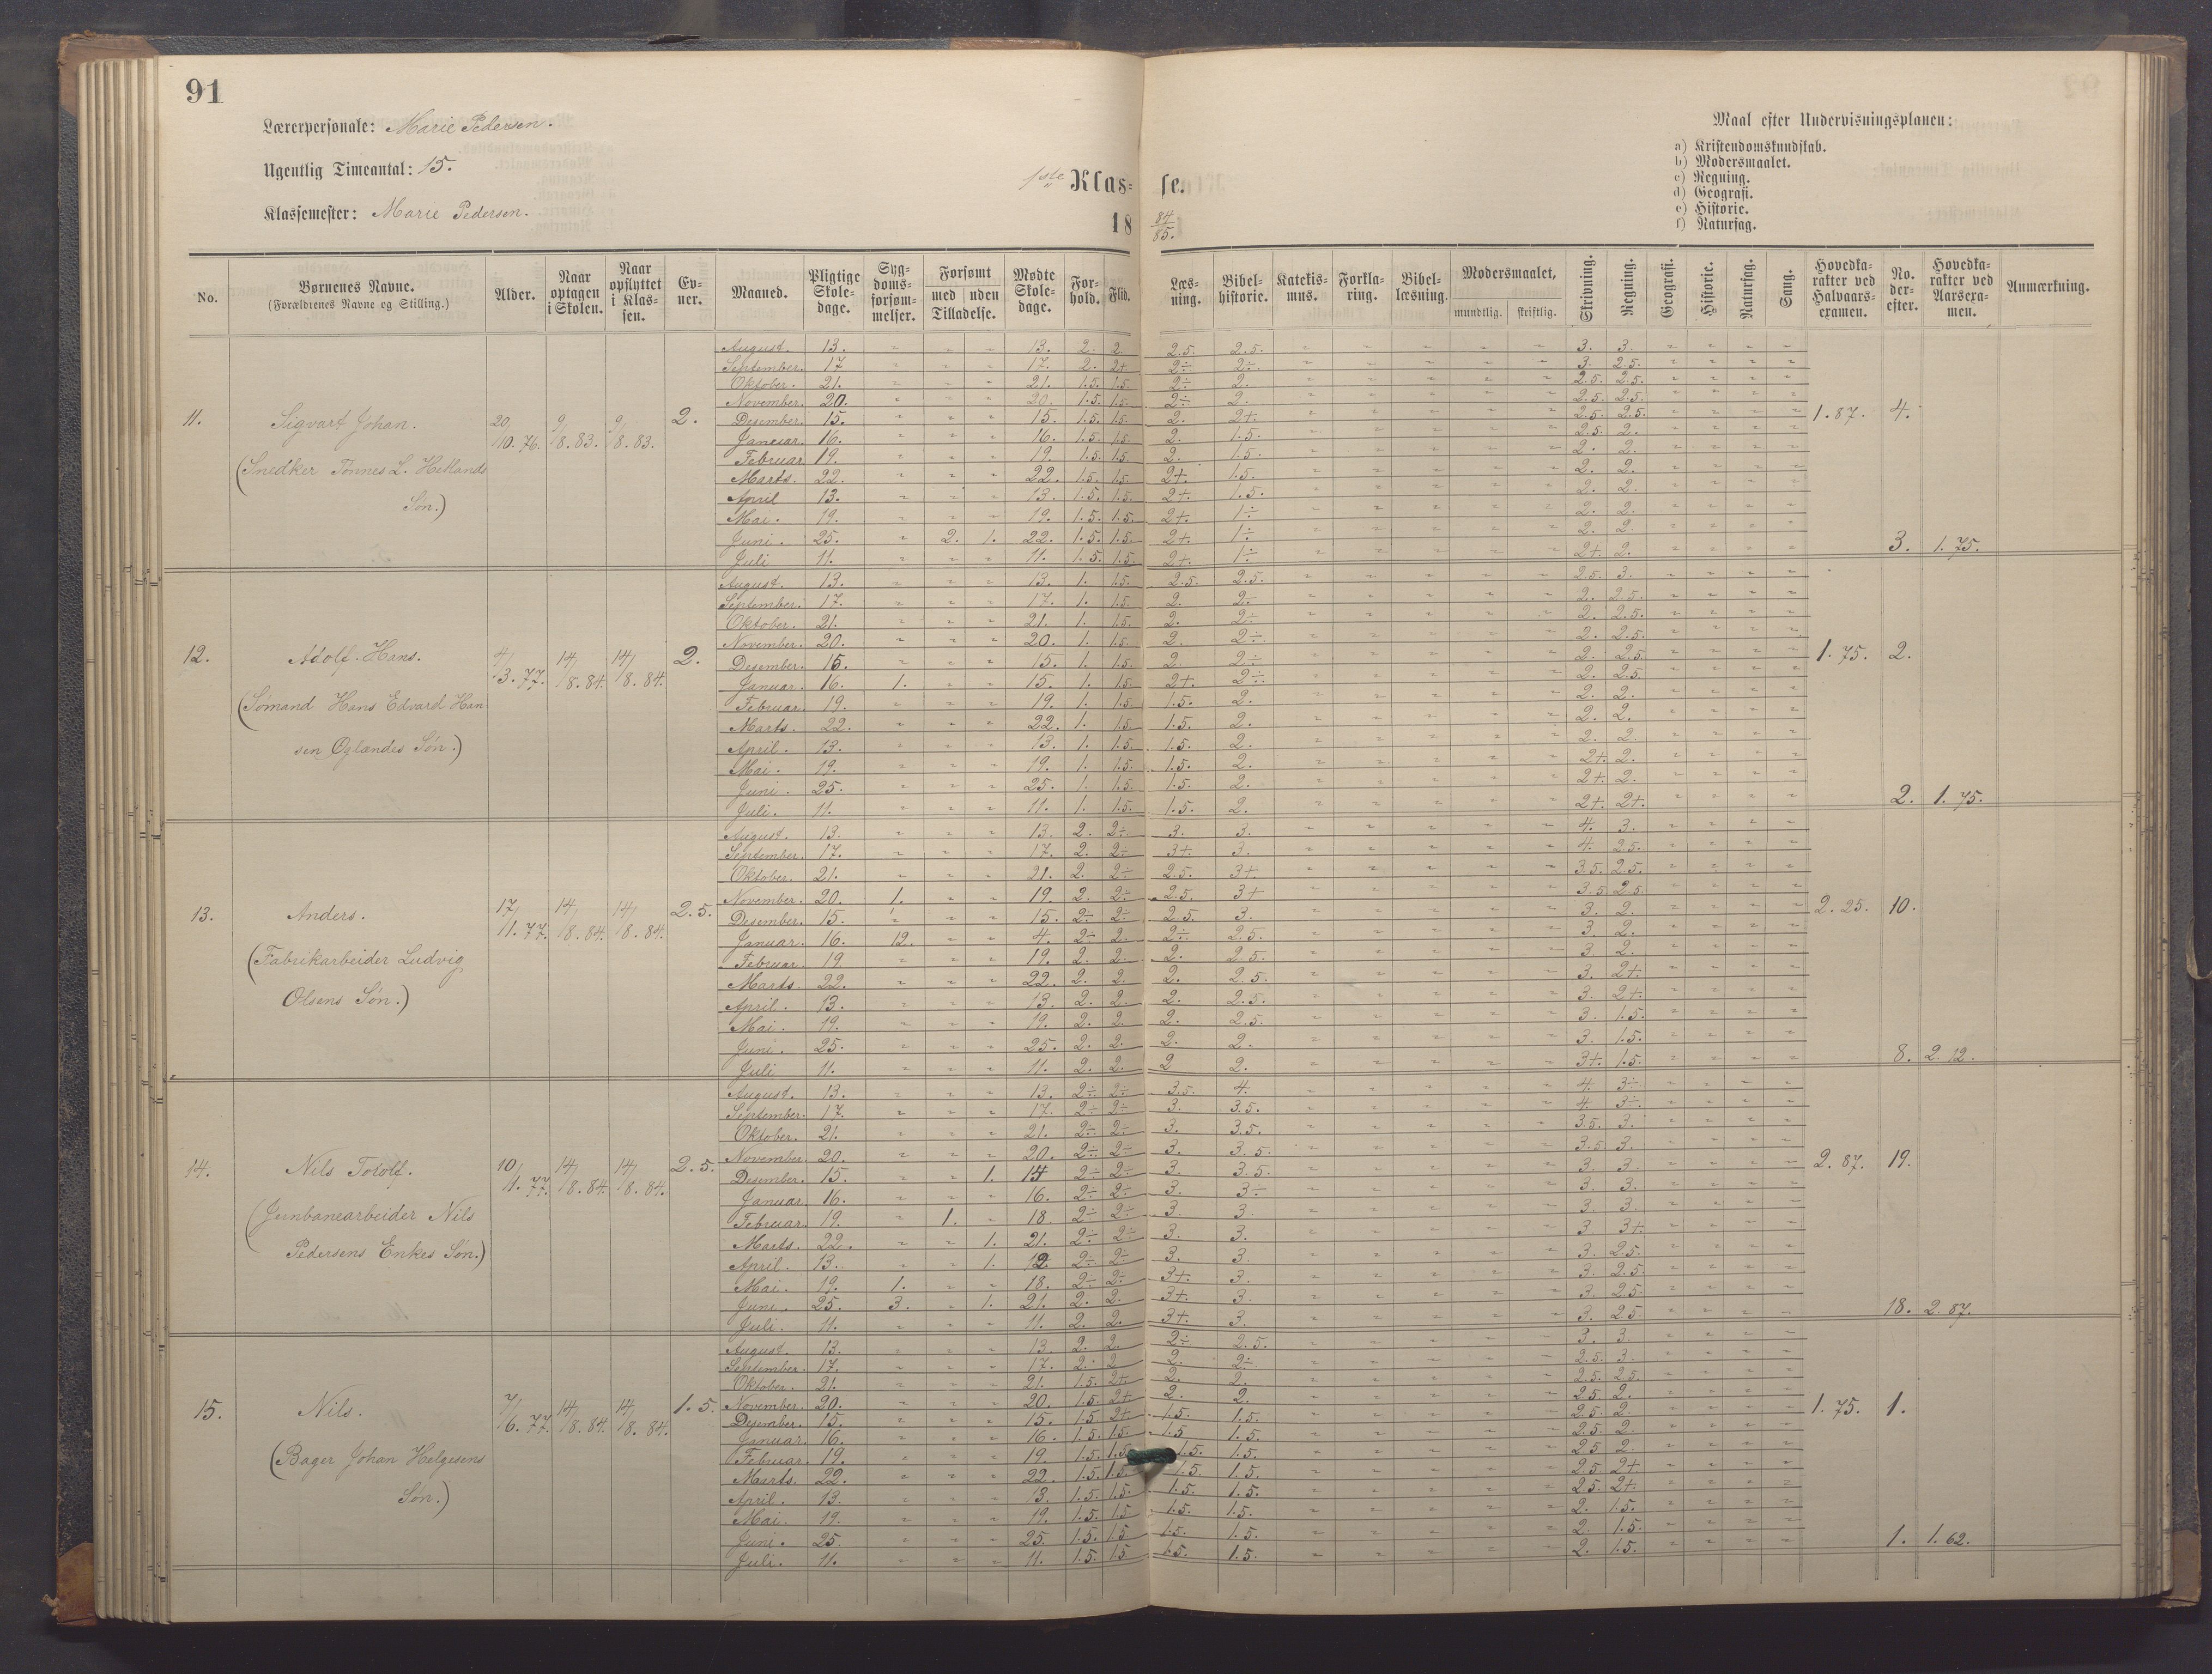 91
Lærerpersonale: Marie Pedersen.
Ugentlig Timeantal: 15.
Klassemester: Marie Pedersen.
1ste Klasse.
18 84/85.
Maal efter Undervisningsplanen:
a) Kristendomskundskab.
b) Modersmaalet.
c) Regning.
d) Geografi.
e) Historie.
f) Naturfag.
No. | Børnenes Navne. (Forældrenes Navne og Stilling.) | Alder. | Naar optagen i Skolen. | Naar opflyttet i Klassen. | Evner. | Maaned. | Pligtige Skoledage. | Sygdomsforsømmelser. | Forsømt med Tilladelse. | uden Tilladelse. | Mødte Skoledage. | Forhold. | Flid. | Læsning. | Bibelhistorie. | Katekismus. | Forklaring. | Bibellæsning. | Modersmaalet, mundtlig. | skriftlig. | Skrivning. | Regning. | Geografi. | Historie. | Naturfag. | Sang. | Hovedkarakter ved Halvaarsexamen. | No. derefter. | Hovedkarakter ved Aarsexamen. | Anmærkning.
11. Sigvart Johan. 20/10.76. 9/8.83. 9/8.83. 2. 1.87. 4.
(Snedker Tønnes L. Hetlands
Søn.)
August. 13. 13. 2. 2. 2.5. 2.5. 3. 3.
September. 17 17. 2. 2+ 2÷ 2÷. 3. 2.5.
Oktober. 21. 21. 1.5. 1.5. 2÷ 2. 2.5. 2.5.
November. 20. 20. 1.5. 1.5. 2÷ 2. 2.5. 2.5.
Desember. 15. 15. 1.5. 1.5. 2. 2+. 2.5. 2.5.
Januar. 16. 16. 1.5. 1.5. 2. 1.5. 2.5. 2.
Februar. 19. 19. 1.5. 1.5. 2. 1.5. 2. 2.
Marts. 22. 22. 1.5. 1.5. 2+. 1.5. 2. 2.
April 13. 13. 1.5. 1.5. 2+. 1.5. 2. 2.
Mai. 19. 19. 1.5. 1.5. 2+. 1÷ 2. 2.
Juni. 25. 2. 1. 22. 1.5. 1.5. 2+. 1÷ 2. 2.
Juli 11. 11. 1.5. 1.5. 2+ 1÷ 2+. 2. 3. 1.75.
12. Adolf Hans. 4/3.77. 14/8.84. 14/8.84. 2. 1.75. 2.
(Sømand Hans Edvard Han
sen Øglændes Søn.)
August. 13. 13. 1. 1.5. 2.5. 2.5. 2.5. 3.
September. 17. 17. 1. 1.5. 2. 2÷ 2. 2.5.
Oktober. 21. 21. 1. 1.5. 2. 2÷ 2. 2.5.
November. 20. 20. 1. 1.5. 2. 2÷. 2. 2.5.
Desember. 15. 15. 1. 1.5. 2. 2÷ 2. 2.5.
Januar. 16. 1. 15. 1. 1.5. 2+. 2÷. 2. 2.5.
Februar. 19. 19. 1. 1.5. 1.5. 2. 2. 2.
Marts. 22. 22. 1. 1.5. 1.5. 2. 2. 2.
April. 13. 13. 1. 1.5. 1.5. 2. 2. 2.
Mai. 19. 19. 1. 1.5. 1.5. 2. 2+. 2.
Juni. 25. 25. 1. 1.5. 1.5. 2. 2+. 2.
Juli. 11. 11. 1. 1.5. 1.5. 2. 2+. 2+. 2. 1.75.
13. Anders. 17/11.77. 14/8.84. 14/8.84. 2.5. 2.25. 10.
(Fabrikarbeider Ludvig
Olsens Søn.)
August. 13. 13. 2. 2÷ 3. 3. 4. 3.
September. 17. 17. 2. 2÷ 3+. 3. 4. 2.5.
Oktober. 21. 21. 2. 2÷ 2.5. 3+ 3.5. 2.5.
November. 20. 1. 19. 2. 2÷ 2.5. 3+ 3.5 2.5.
Desember. 15. 15. 2÷ 2÷ 2.5. 3. 3. 2.
Januar. 16. 12. 4. 2÷ 2. 2÷ 2.5. 3. 2
Februar. 19 19. 2. 2. 2. 2.5. 3 2.
Marts. 22. 22. 2. 2. 2. 2.5. 3. 2+.
April. 13. 13. 2. 2. 2. 2.5. 3. 2+.
Mai. 19. 19. 2. 2. 2. 2.5. 3. 1.5.
Juni. 25. 25. 2. 2. 2. 2. 3. 1.5.
Juli 11. 11. 2. 2. 2 2. 3+. 1.5. 8. 2.12.
14. Nils Torolf. 10/11.77. 14/8.84. 14/8.84. 2.5. 2.87. 19.
(Jernbanearbeider Nils
Pedersens Enkes Søn.)
August. 13. 13. 2÷ 2÷ 3.5. 4. 4. 3÷.
September. 17. 17. 2÷ 2÷ 3. 3.5. 4. 3÷.
Oktober. 21. 21. 2÷ 2÷ 3. 3.5. 3.5. 3.
November. 20. 20. 2÷ 2÷ 3. 3.5. 3.5 3.
Desember. 15. 1. 14 2÷ 2÷ 3. 3.5. 3. 3.
Januar. 16. 16. 2÷ 2÷ 3. 3÷ 3. 3.
Februar. 19. 1. 18. 2÷ 2÷ 3. 3. 3. 3.
Marts. 22. 1. 21. 2÷ 2÷ 3. 3. 3 3+.
April. 13. 1. 12. 2÷ 2÷ 3. 3. 3. 2.5.
Mai. 19. 1. 18. 2÷ 2÷ 3+. 3. 3. 2.5.
Juni. 25. 3. 1. 21. 2. 2. 3+. 3. 3. 2.5.
Juli. 11. 11. 2. 2. 3+. 3. 3. 2.5. 18. 2.87.
15. Nils. 7/6.77. 14/8.84. 14/8.84. 1.5. 1.75. 1.
(Bager Johan Helgesens
Søn.)
August. 13. 13. 2. 2. 2÷ 2.5. 3. 3.
September. 17. 17. 2. 2 2. 2÷ 2.5. 3.
Oktober. 21. 21. 1.5. 2+ 2. 2. 2.5. 2.5.
November. 20. 20. 1.5. 2+ 2. 2. 2.5. 2.
Desember. 15. 15. 1.5 2+ 1.5. 1.5. 2.5. 2.
Januar. 16. 16. 1.5. 1.5. 1.5 1.5. 2.5. 2.
Februar. 19. 19. 1.5. 1.5. 1.5. 1.5. 2.5 2.
Marts. 22. 22. 1.5. 1.5. 1.5. 1.5. 2.5. 2+.
April. 13. 13. 1.5. 1.5. 1.5. 1.5. 2.5. 2+.
Mai. 19. 19. 1.5. 1.5 1.5. 1.5. 2. 1.5.
Juni. 25. 25. 1.5. 1.5 1.5. 1.5. 2. 1.5.
Juli. 11. 11. 1.5. 1.5 1.5. 1.5. 2. 1.5. 1. 1.62.